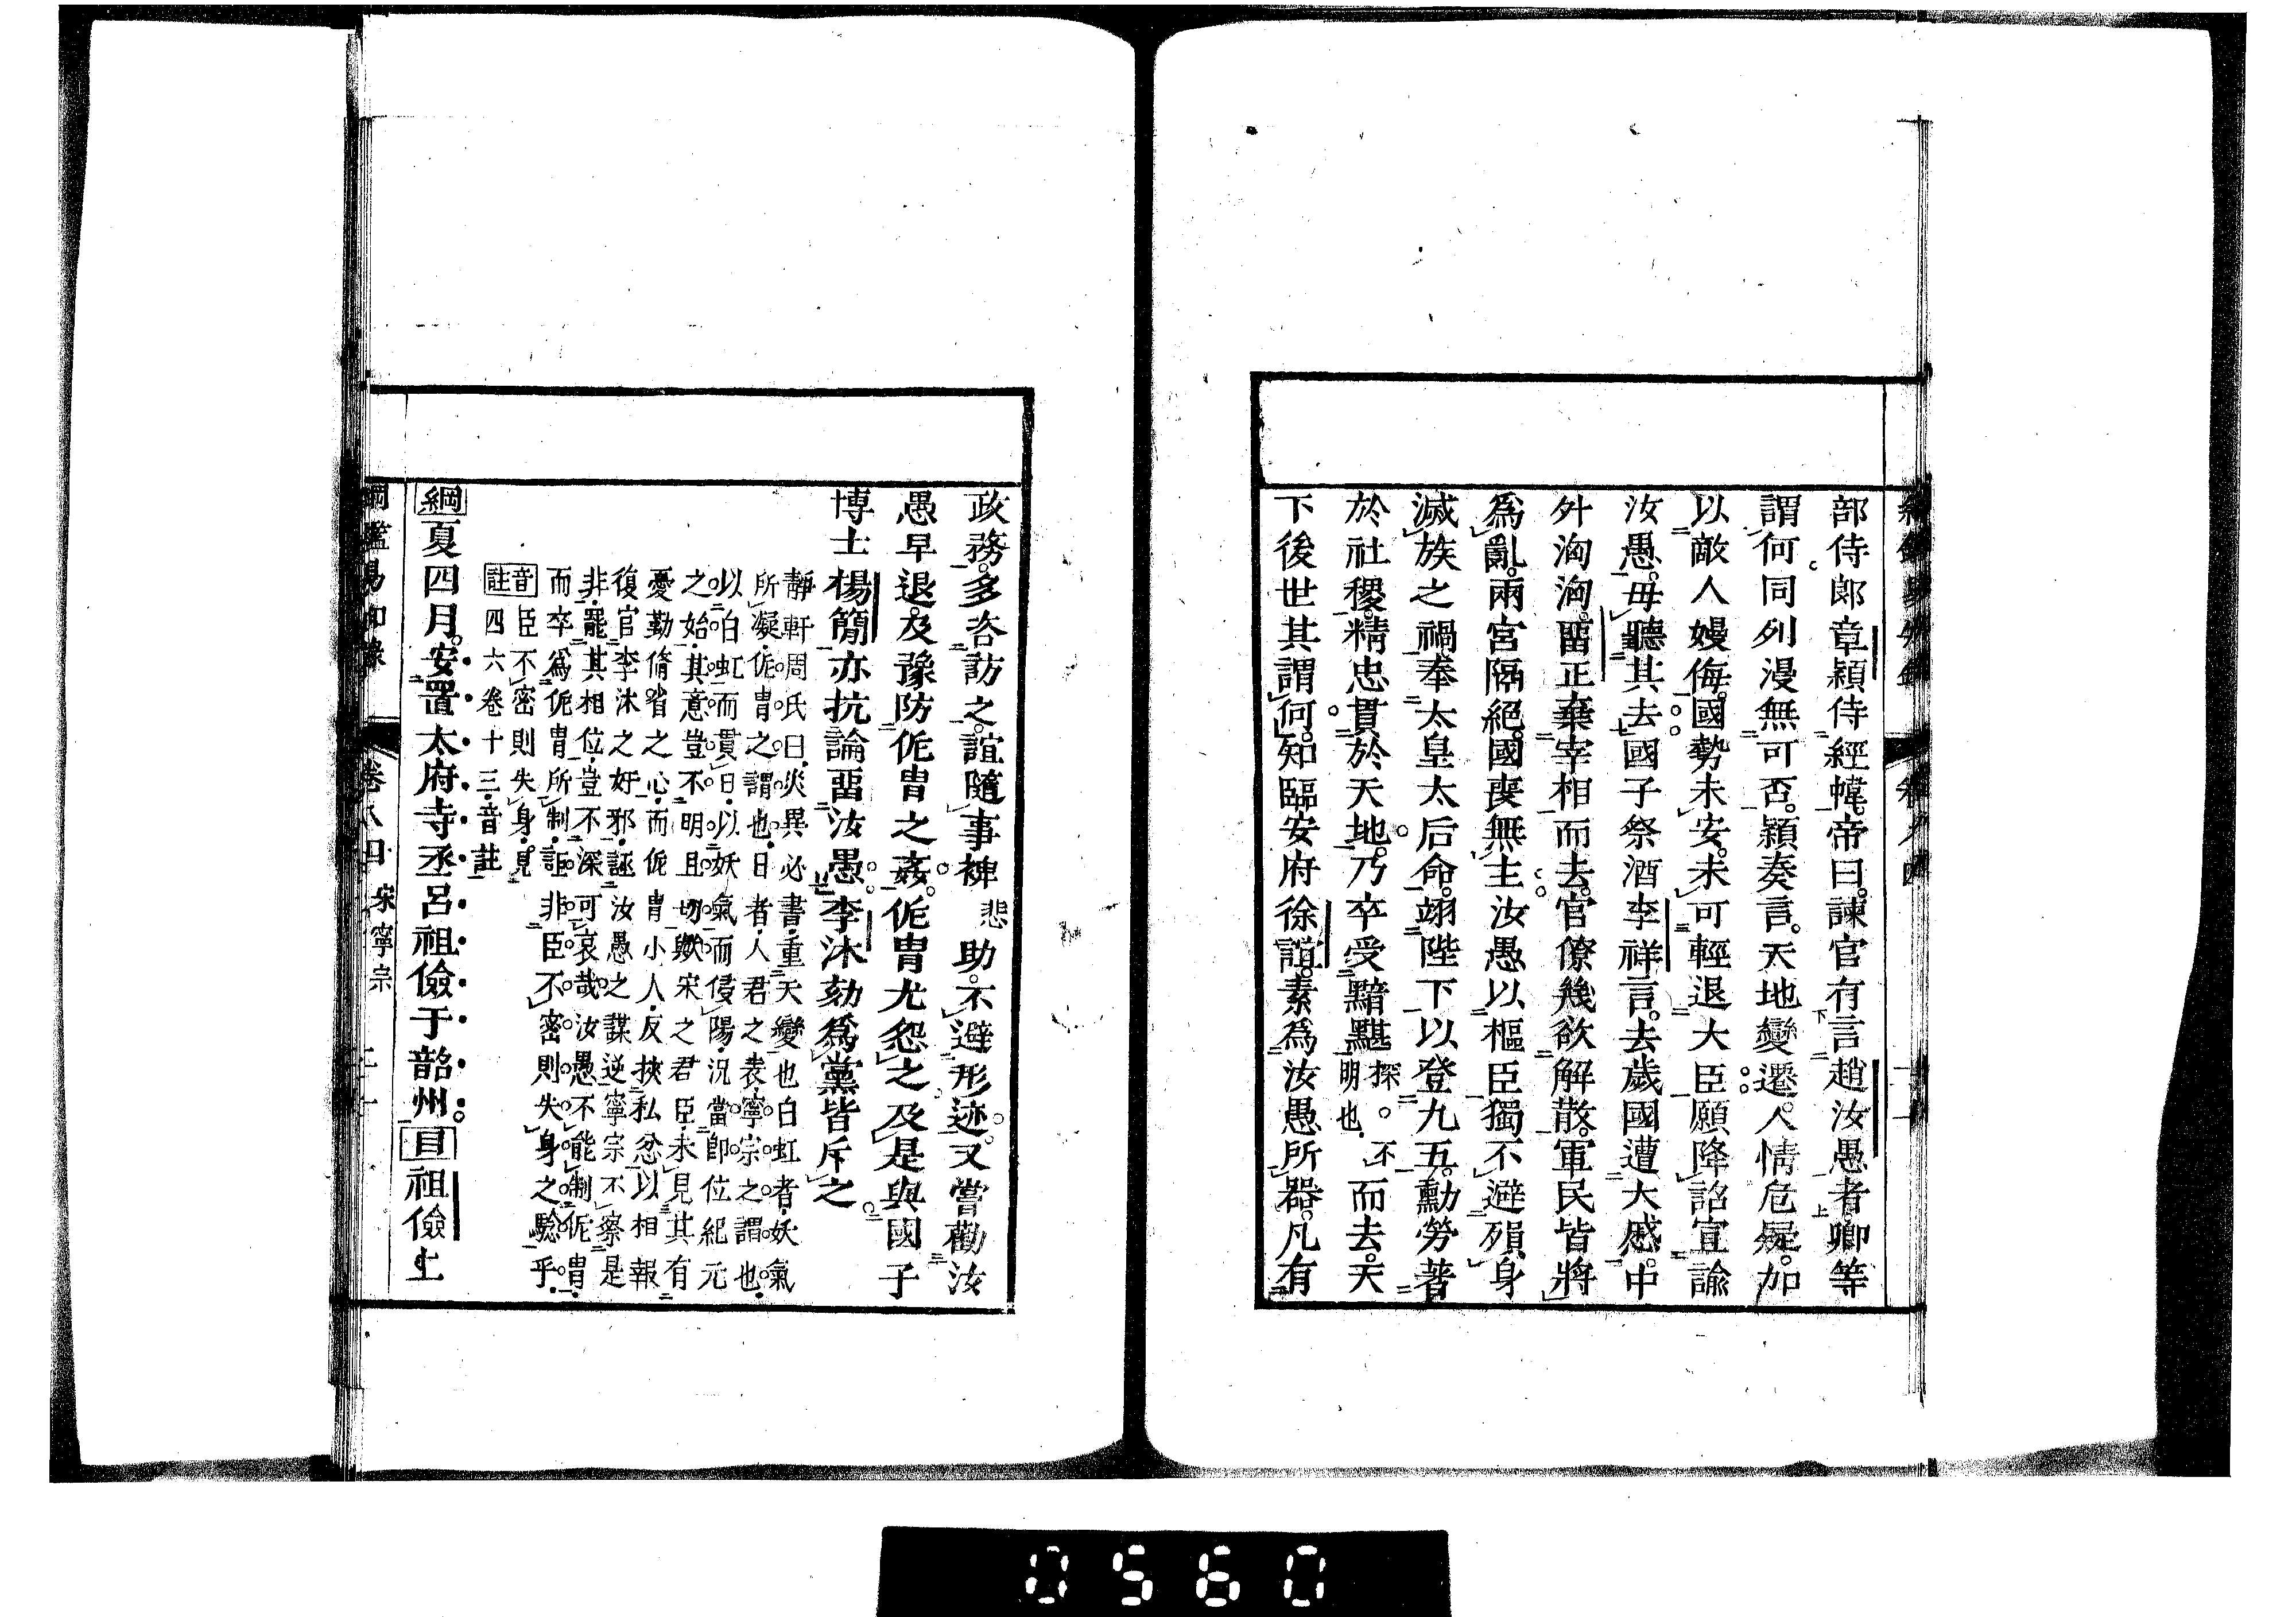 部侍郎章穎侍經幄帝曰諫官有言趙汝愚者卿等
謂何同列漫無可否穎奏言天地變遷人情危疑加
以敵人嫚侮國勢未安未可輕退大臣願降詔宣諭
汝愚毋聽其去國子祭酒李祥言去歲國遭大慼中
外洶洶留正棄宰相而去官僚幾欲解散軍民皆將
爲亂兩宮隔絕國喪無主汝愚以樞臣獨不避殞身
滅族之禍奉太皇太后命翊陛下以登九五勳勞著
於社稷精忠貫於天地乃卒受黯黮探。不明也而去天
下後世其謂何知臨安府徐誼素爲汝愚所器凡有
政務多咨訪之誼隨事裨悲助不避形迹又嘗勸汝
愚早退及豫防侂胄之姦侂胄尤怨之及是與國子
博士楊簡亦抗論留汝愚李沐劾爲黨皆斥之
靜軒周氏曰災異必書重天變也白虹者妖氣
所凝侂胄之謂也日者人君之表寧宗之謂也
以白虹而貫日以妖氣而侵陽況當即位紀元
之始其意豈不明且切歟宋之君臣未見其有
憂勤脩省之心而侂胄小人反挾私忿以相報
復官李沐之奸邪誣汝愚之謀逆寧宗不察是
非罷其相位豈不深可哀哉汝愚不能制侂胄
而卒爲侂胄所制詎非臣不密則失身之驗乎
音臣不密則失身見
註四六卷十三音註
綱夏四月安置太府寺丞呂祖儉于韶州目祖儉上
綱鑑易知錄 卷八四 宋寧宗
0560